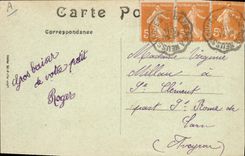 A
Carte Po
Correspondance
Gros baiser
de votre petit
Roger
Madame Virginie
Millau à
St Clément
part St Rome de
Tarn
Aveyron